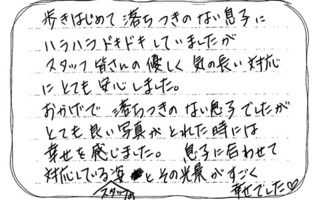 歩きはじめて落ちつきのない息子に
ハラハラドキドキしていましたが
スタッフ皆さんの優しく気の長い対応
にとても安心しました。
おかげで落ちつきのない息子でしたが
とても良い写真がとれた時には
幸せを感じました。息子に合わせて
対応している姿とその光景がすごく
スタッフの
幸せでした♡